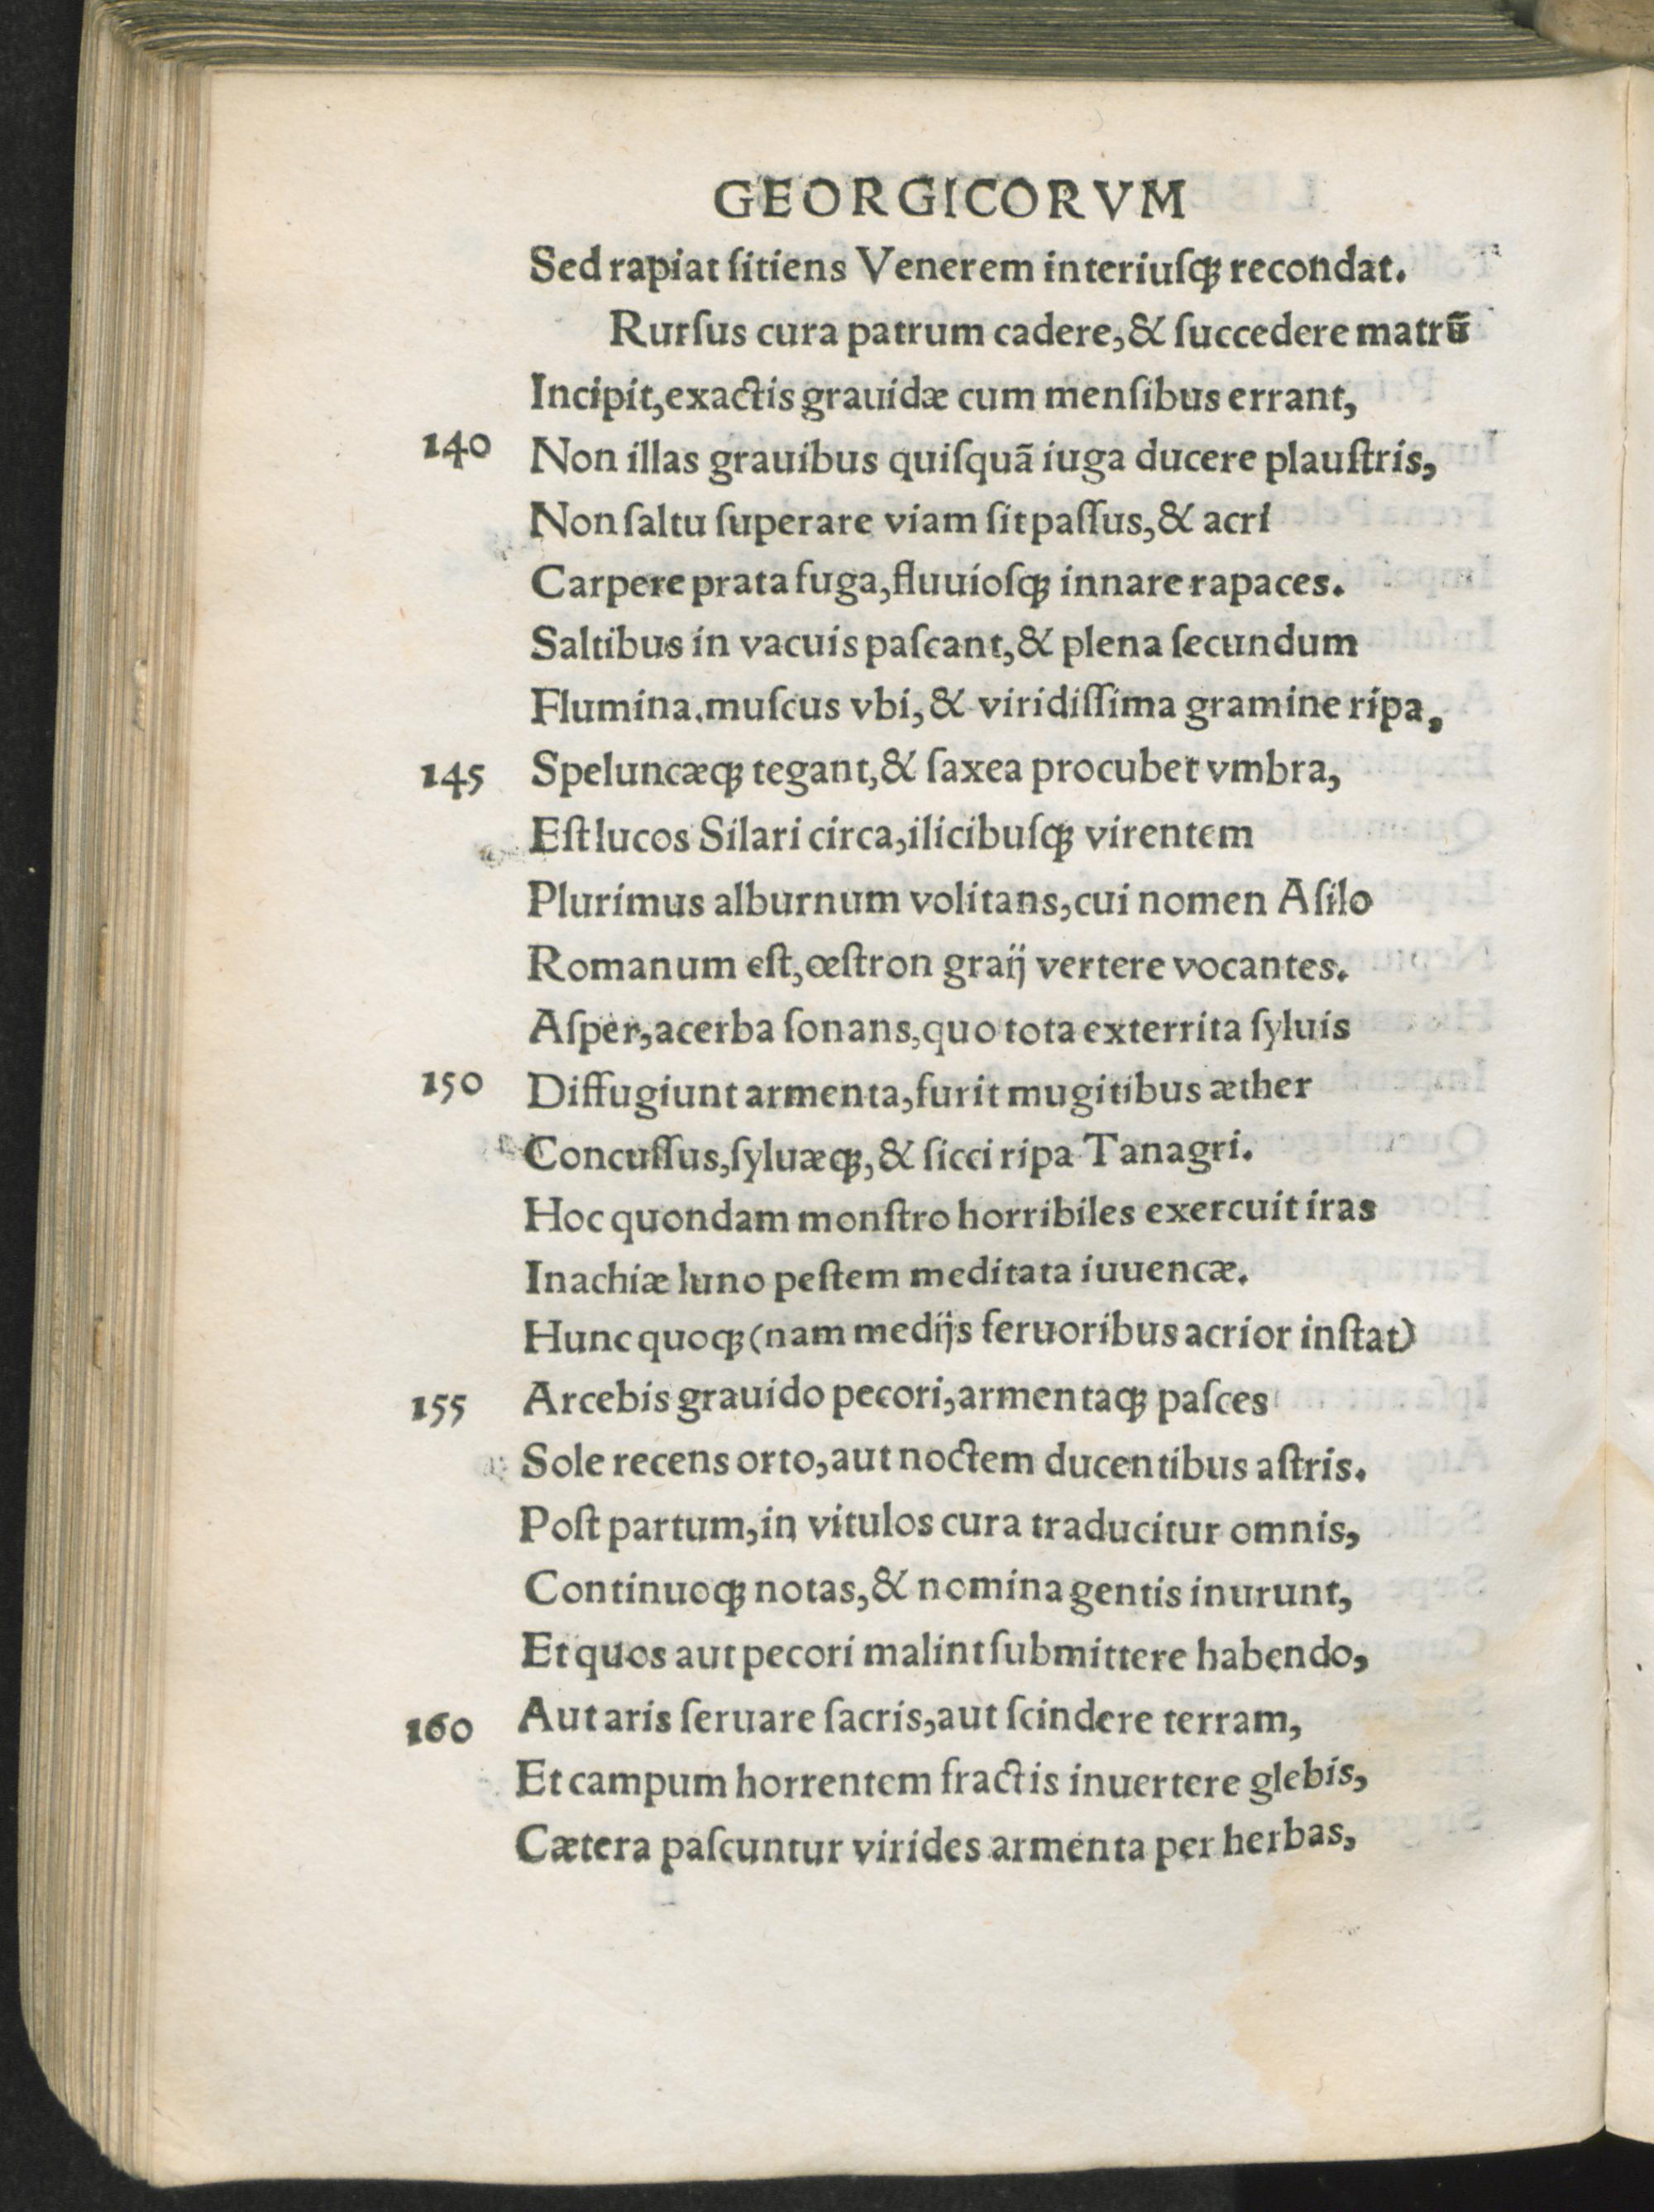 GEORGICORVM
Sed rapiat ſitiens Venerem interiuſqꝫ recondat.
Rurſus cura patrum cadere, & ſuccedere matrū
Incipit, exactis grauidæ cum menſibus errant,
140 Non illas grauibus quiſquã iuga ducere plauſtris,
Non ſaltu ſuperare viam ſit paſſus, & acri
Carpere prata fuga, fluuioſqꝫ innare rapaces.
Saltibus in vacuis paſcant, & plena ſecundum
Flumina. muſcus vbi, & viridiſſima gramine ripa,
145 Speluncæqꝫ tegant, & ſaxea procubet vmbra,
Eſt lucos Silari circa, ilicibuſqꝫ virentem
Plurimus alburnum volitans, cui nomen Aſilo
Romanum eſt, œſtron graij vertere vocantes.
Aſper, acerba ſonans, quo tota exterrita ſyluis
150 Diffugiunt armenta, furit mugitibus æther
Concuſſus, ſyluæqꝫ, & ſicci ripa Tanagri.
Hoc quondam monſtro horribiles exercuit iras
Inachiæ Iuno peſtem meditata iuuencæ.
Hunc quoqꝫ (nam medijs feruoribus acrior inſtat)
155 Arcebis grauido pecori, armentaqꝫ paſces
Sole recens orto, aut noctem ducentibus aſtris.
Poſt partum, in vitulos cura traducitur omnis,
Continuoqꝫ notas, & nomina gentis inurunt,
Et quos aut pecori malint ſubmittere habendo,
160 Aut aris ſeruare ſacris, aut ſcindere terram,
Et campum horrentem fractis inuertere glebis,
Cætera paſcuntur virides armenta per herbas,